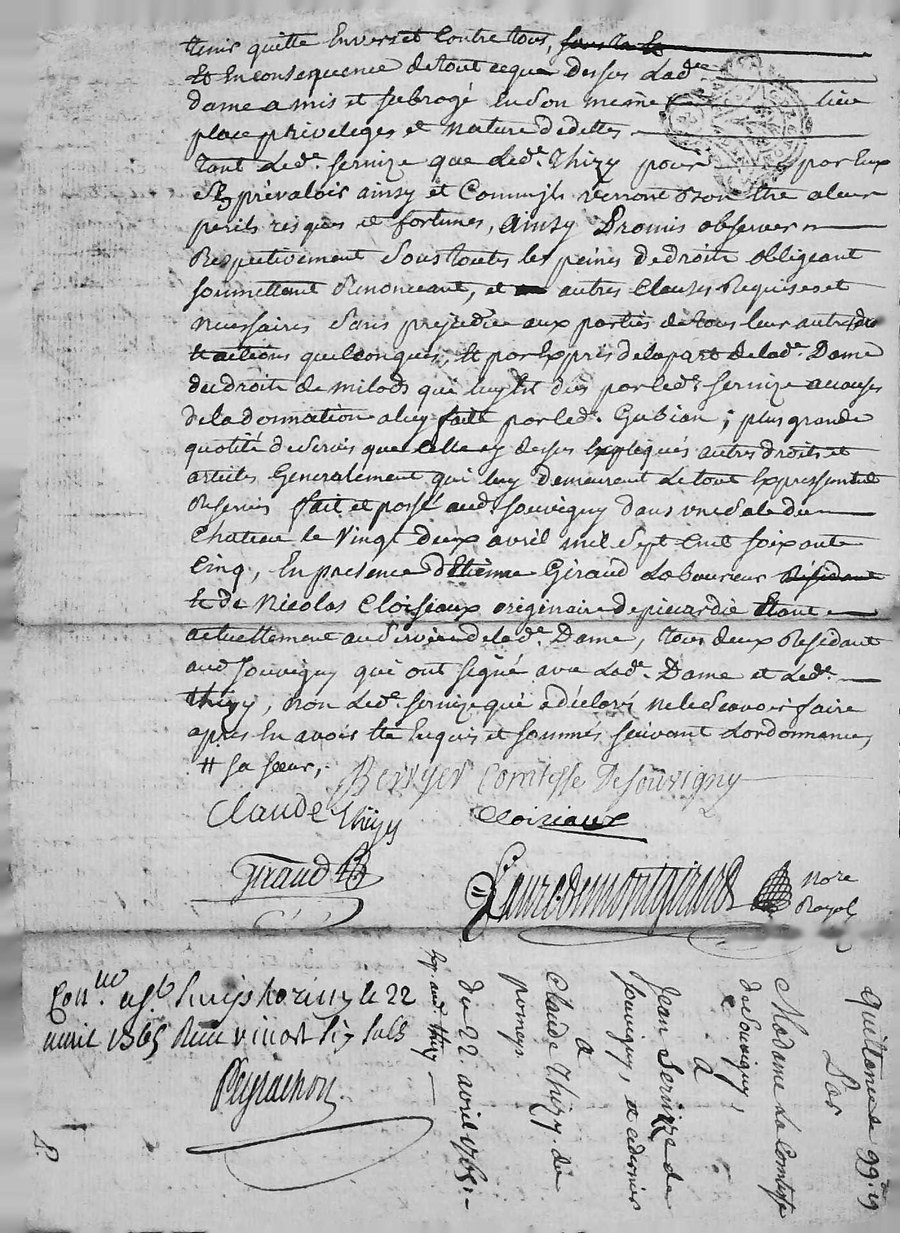 tenir quitte Envers et Contre tous,
Et En consequence de tout ceque Dessus Lade
dame a mis et subrogé En son meme lieu
place privileges et Nature de dettes
tant Led. Sernize que Led. Thizy pour par Eux
s'En prévaloir ainsy et Comme ils verront bon Etre a leur
perils risques et fortunes, Ainsy Promis observer
Respectivement Sous toutes les peines de droit obligeant
soumettant Renonceant, et autres Clauses Requises et
Necessaires Sans prejudice aux parties de tous leur autres
et actions quelconques, Et par Exprès de la part de lad. Dame
du droit de milods qui luy Est dus par led. Sernize a cause
de la donnation a luy faite par led. Gubian ; plus grande
quotité de Servis que celle cy dessus Expliqués autres droits et
articles Generalement qui luy demeurent de tout Expressement
Reservés fait et passé aud. Souvigny dans une Sale du
Chateau le Vingt deux avril mil Sept Cent Soixante
Cinq, En presence d'Etienne Giraud Laboureur
Et de Nicolas Cloiseaux originaire de picardie Etant
actuellement au Service de lad. Dame, tous deux Residant
aud. Souvigny qui ont signé avec Lad. Dame et Led.
thizy, non Led. Sernize qui a déclaré ne le Scavoir faire
après En avoir Eté Enquis et sommés suivant L'ordonnance,
# sa soeur,
Berger Comtesse De Souvigny
Claude thizy
Cloiziaux
Giraud
Laure demontgirard
Nore
Royal
Con.lle à St. Simphorien le 22
avril 1765 Reçu vingt six sols
Peyrachon.
Quittance de 99.
Par
Madame La Comtesse
de Souvigny,
à
Jean Sernize de
Souvigny, et
a
Claude Thizy de
pomeys
du 22 avril 1765.
Exp. aud. thizy